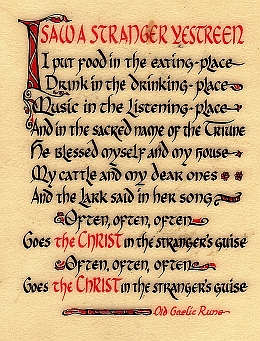 I SAW A STRANGER YESTREEN
I put food in the eating-place
Drink in the drinking-place
Music in the Listening-place
And in the sacred name of the Triune
He blessed myself and my house
My cattle and my dear ones
And the Lark said in her song
Often, often, often
Goes the CHRIST in the stranger's guise
Often, often, often
Goes the CHRIST in the stranger's guise
Old Gaelic Rune